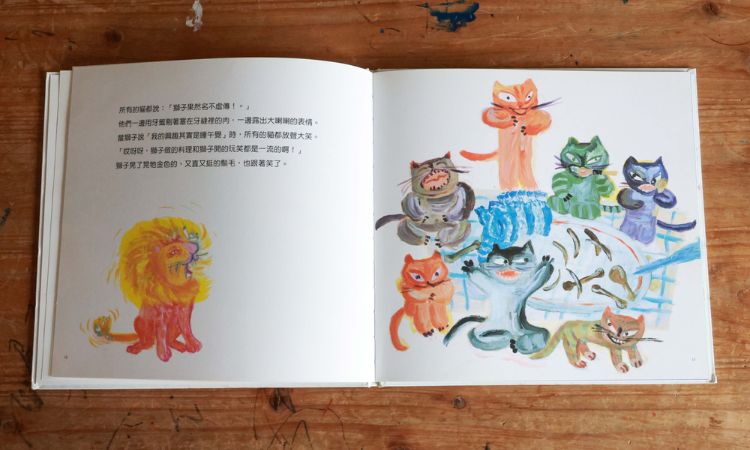 所有的貓都說：「獅子果然名不虛傳！。」
他們一邊用牙籤剔著塞在牙縫裡的肉，一邊露出大喇喇的表情。
當獅子說「我的興趣其實是睡午覺」時，所有的貓都放聲大笑。
「哎呀呀，獅子做的料理和獅子開的玩笑都是一流的啊！」
獅子晃了晃他金色的，又直又挺的鬃毛，也跟著笑了。